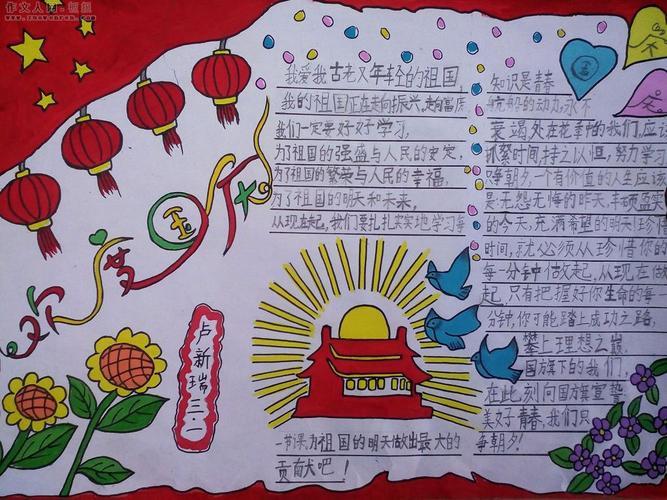 作文人网
欢度国庆
我爱我古老又年轻的祖国，
我的祖国正在走向振兴，走向富庶
我们一定要好好学习，
为了祖国的强盛与人民的安定，
为了祖国的繁荣与人民的幸福，
为了祖国的明天和未来，
从现在起，我们要扎扎实实地学习每
一节课，为祖国的明天做出最大的
贡献吧！
卢新瑞 三
知识是青春
航船的动力，永不
衰竭，处在花季的我们，应
抓紧时间，持之以恒，努力学习
争朝夕一个有价值的人生应该
是：无怨无悔的昨天，丰硕盈实
的今天，充满希望的明天！珍惜
时间，就必须从珍惜你的
每一分钟做起，从现在做
起，只有把握好你生命的每一
分钟，你可能踏上成功之路，
攀上理想之巅。
国旗下的我们，
在此刻向国旗宣誓
美好青春，我们只
争朝夕！